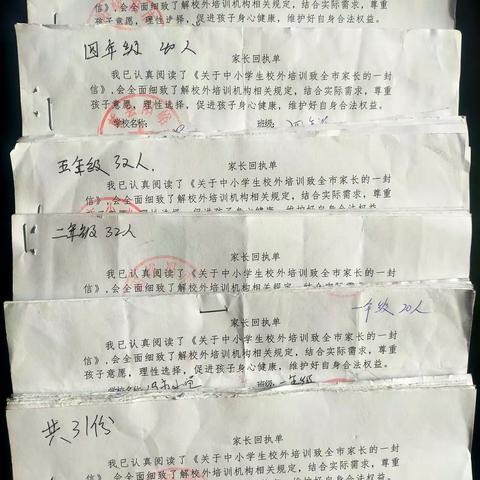 信》,会全面细致了解校外培训机构相关规定,结合实际需求,尊重
孩子意愿,理性选择,促进孩子身心健康,维护好自身合法权益。
四年级 40人
家长回执单
我已认真阅读了《关于中小学生校外培训致全市家长的一封
信》,会全面细致了解校外培训机构相关规定,结合实际需求,尊重
孩子意愿,理性选择,促进孩子身心健康,维护好自身合法权益。
学校名称:
班级:
五年级 32人.
家长回执单
我已认真阅读了《关于中小学生校外培训致全市家长的一封
信》,会全面细致了解校外培训机构相关规定,结合实际需求,尊重
二年级 32人
家长回执单
我已认真阅读了《关于中小学生校外培训致全市家长的一封
信》,会全面细致了解校外培训机构相关规定,结合实际需求,尊重
一年级 20人
家长回执单
我已认真阅读了《关于中小学生校外培训致全市家长的一封
信》,会全面细致了解校外培训机构相关规定,结合实际需求,尊重
孩子意愿,理性选择,促进孩子身心健康,维护好自身合法权益。
学校名称:
班级: 一年级
共31份
家长回执单
我已认真阅读了《关于中小学生校外培训致全市家长的一封
信》,会全面细致了解校外培训机构相关规定,结合实际需求,尊重
孩子意愿,理性选择,促进孩子身心健康,维护好自身合法权益。